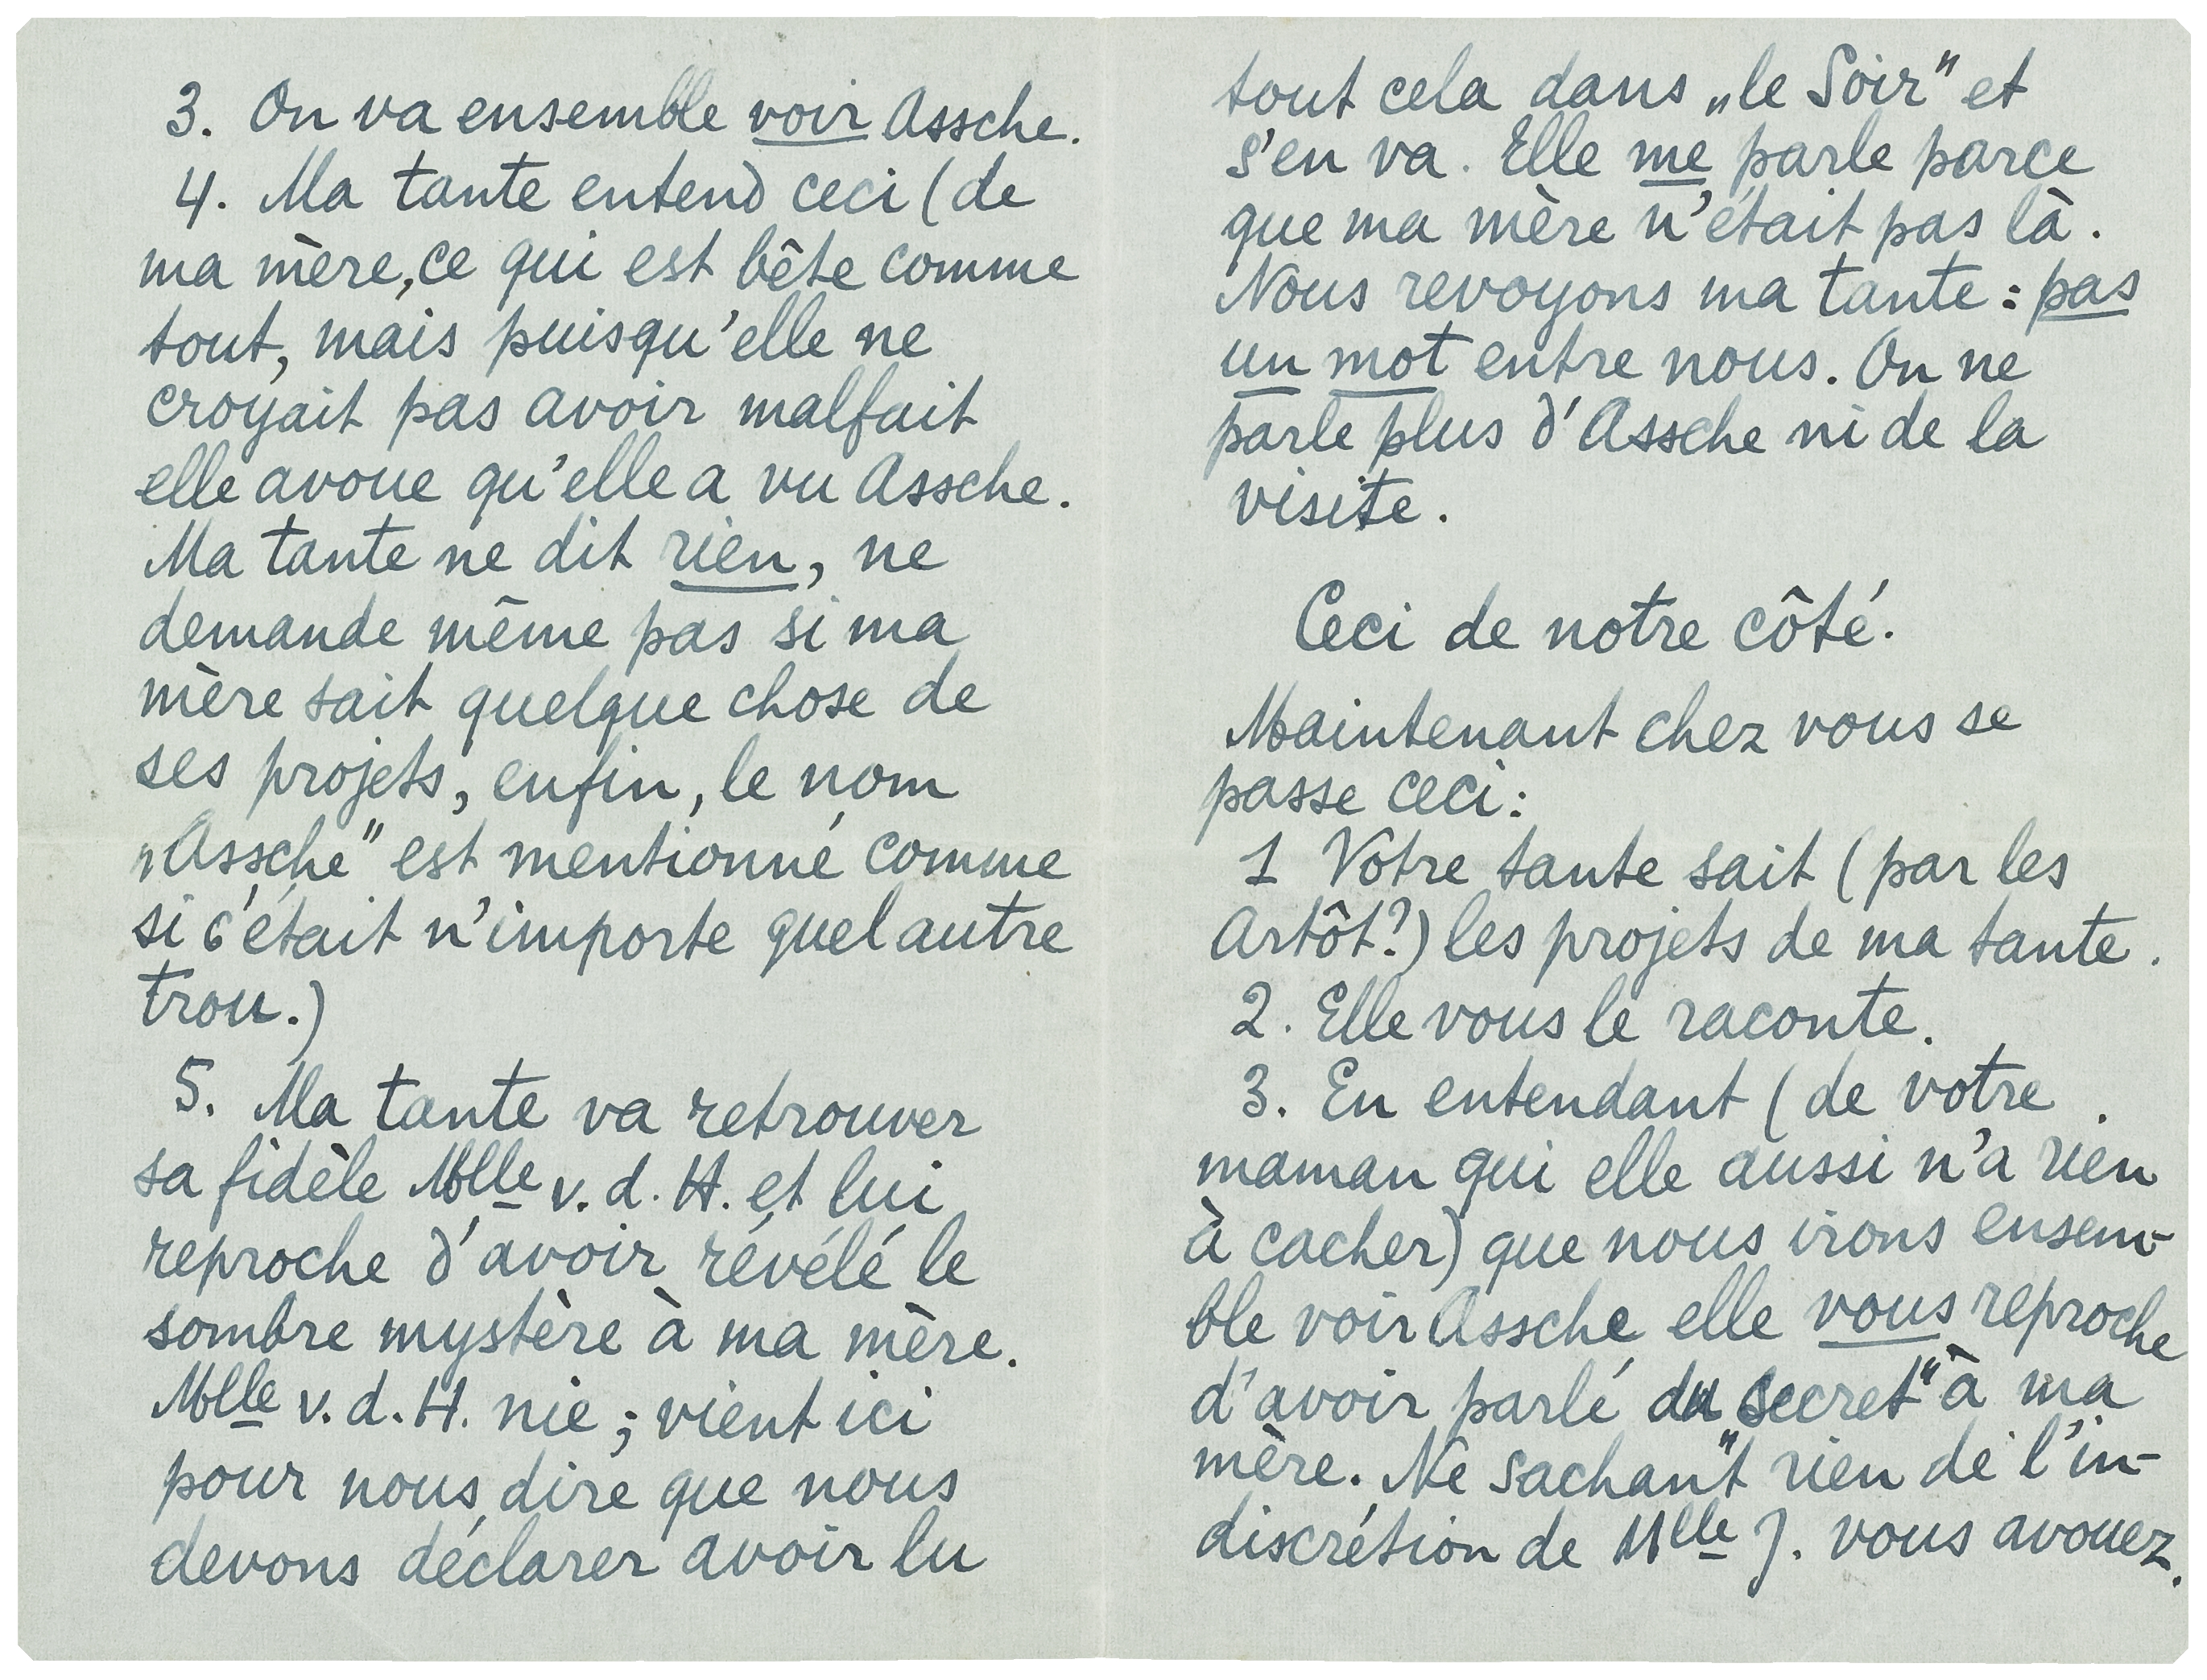 3. On va ensemble voir Assche.
4. Ma tante entend ceci (de
ma mère, ce qui est bête comme
tout, mais puisqu'elle ne
croyait pas avoir malfait
elle avoue qu'elle a vu Assche.
Ma tante ne dit rien, ne
demande même pas si ma
mère sait quelque chose de
ses projets, enfin, le nom
„Assche" est mentionné comme
si c'était n'importe quel autre
trou.)
5. Ma tante va retrouver
sa fidèle Mlle v. d. H. et lui
reproche d'avoir révélé le
sombre mystère à ma mère.
Mlle v. d. H. nie; vient ici
pour nous dire que nous
devons déclarer avoir lu
tout cela dans „le Soir" et
s'en va. Elle me parle parce
que ma mère n'était pas là.
Nous revoyons ma tante: pas
un mot entre nous. On ne
parle plus d'Assche ni de la
visite.
Ceci de notre côté.
Maintenant chez vous se
passe ceci:
1 Votre tante sait (par les
Artôt?) les projets de ma tante.
2. Elle vous le raconte.
3. En entendant (de votre
maman qui elle aussi n'a rien
à cacher) que nous irons ensem-
ble voir Assche elle vous reproche
d'avoir parlé du secret" à ma
mère. Ne sachant rien de l'in-
discrétion de Mlle J. vous avouez.